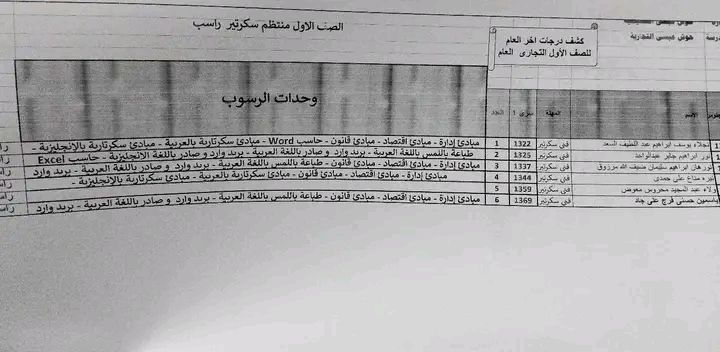 حوش عيسى التجارية
كشف درجات اخر العام
للصف الأول التجارى العام
الصف الاول منتظم سكرتير راسب
الاسم المهنة سرى 1 العدد وحدات الرسوب
نجلاء يوسف ابراهيم عبد اللطيف السعد فني سكرتير 1322 1 مبادئ إدارة - مبادئ اقتصاد - مبادئ قانون - حاسب Word - مبادئ سكرتارية بالعربية - مبادئ سكرتارية بالإنجليزية -
نور ابراهيم جابر عبدالواحد فني سكرتير 1325 2 طباعة باللمس باللغة العربية - بريد وارد و صادر باللغة العربية - بريد وارد و صادر باللغة الانجليزية - حاسب Excel
نورهان ابراهيم سليمان ضيف الله مرزوق فني سكرتير 1337 3 مبادئ إدارة - مبادئ اقتصاد - مبادئ قانون - طباعة باللمس باللغة العربية - بريد وارد و صادر باللغة العربية - بريد وارد
نيره مناع على حمدى فني سكرتير 1344 4 مبادئ إدارة - مبادئ اقتصاد - مبادئ قانون - مبادئ سكرتارية بالعربية - مبادئ سكرتارية بالإنجليزية -
ولاء عبد المجيد محروس معوض فني سكرتير 1359 5
ياسمين حسنى فرج على جاد فني سكرتير 1369 6 مبادئ إدارة - مبادئ اقتصاد - مبادئ قانون - طباعة باللمس باللغة العربية - بريد وارد و صادر باللغة العربية - بريد وارد